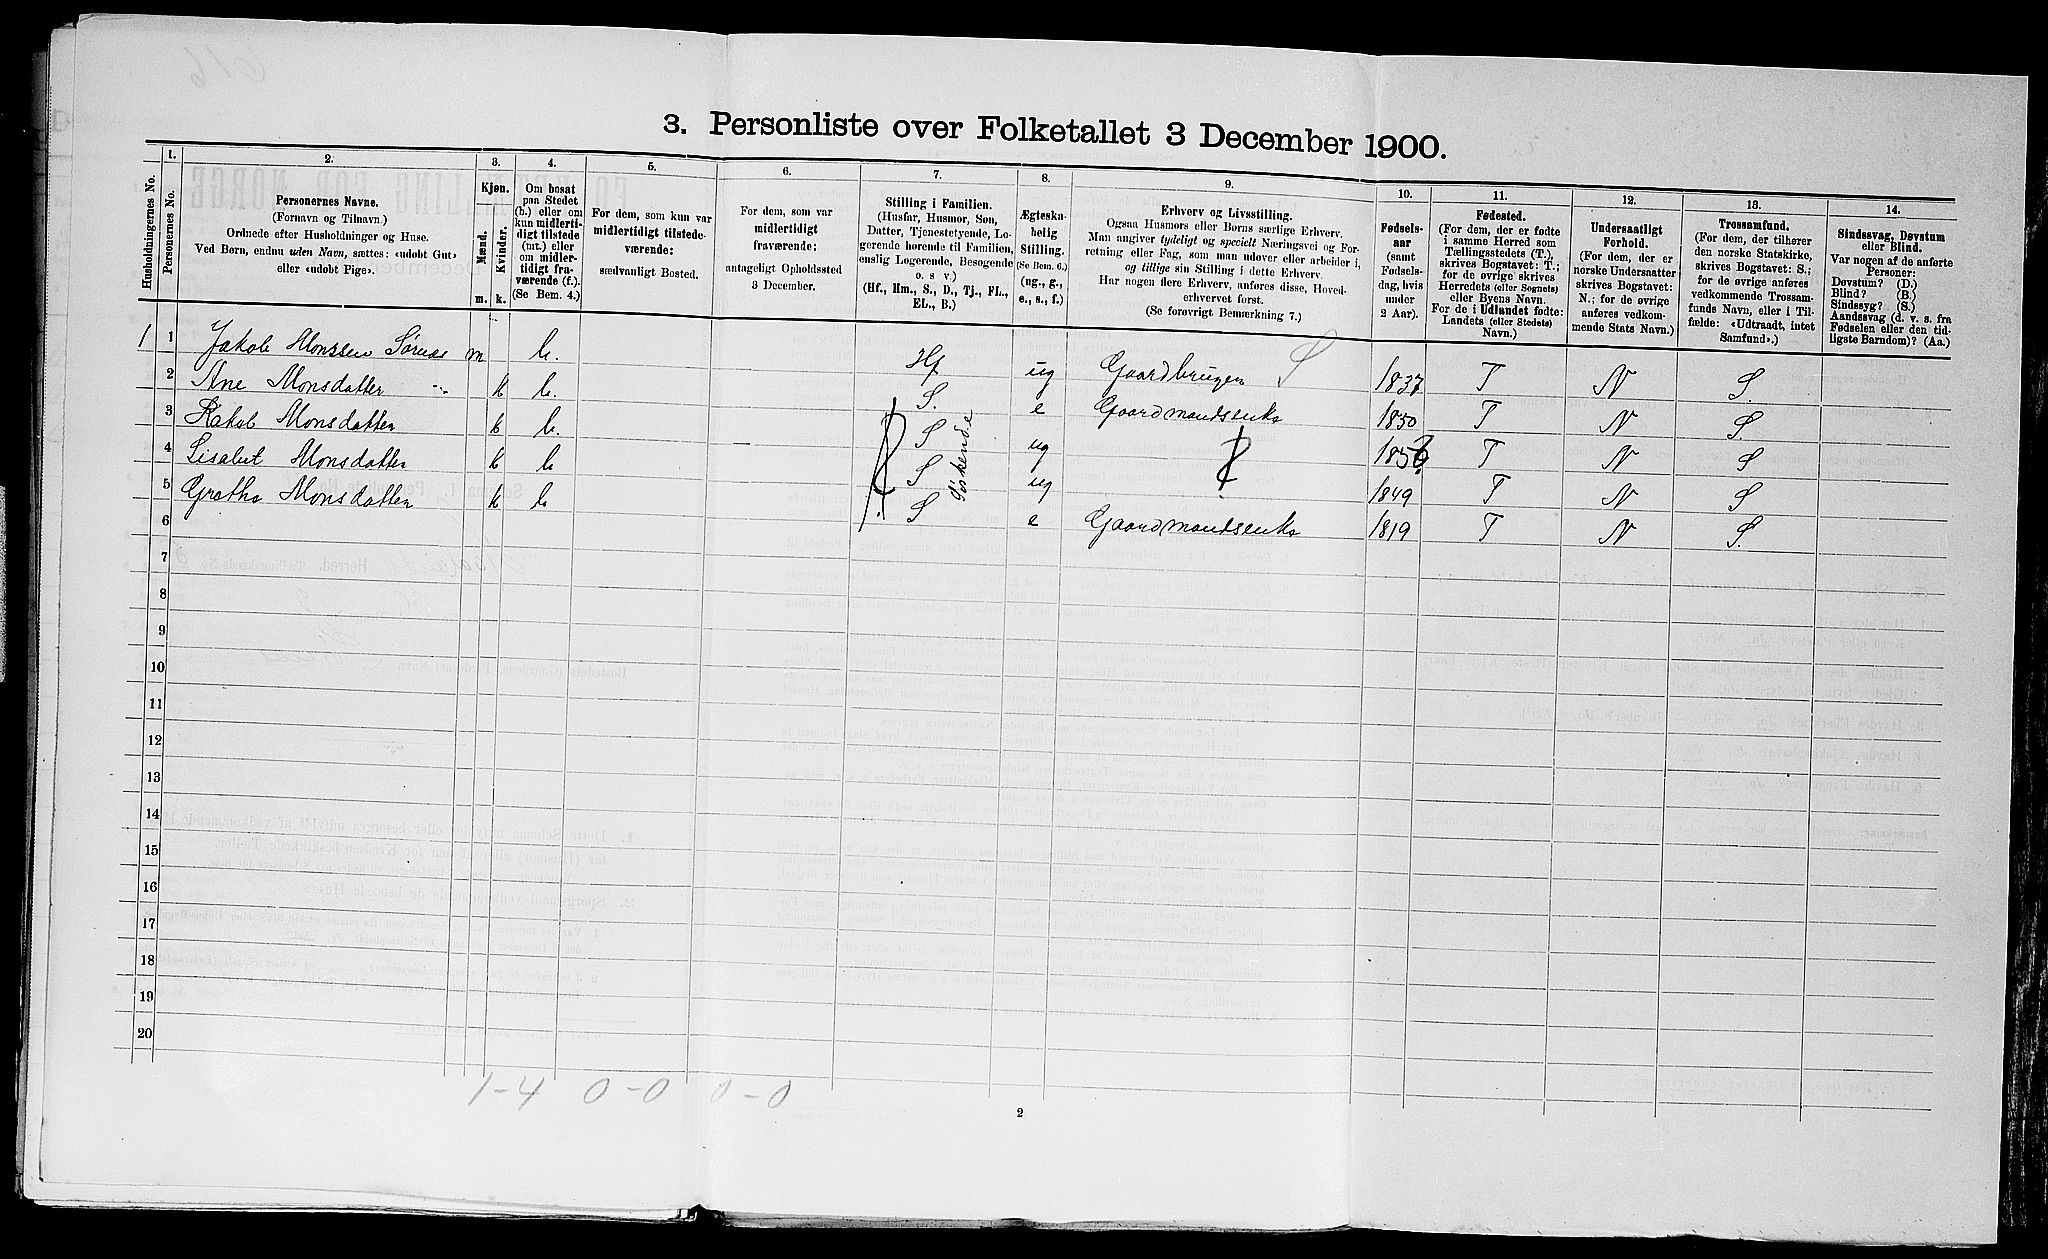 3. Personliste over Folketallet 3 December 1900.
Husholdningernes No.
1.
Personernes No.
2.
Personernes Navne.
(Fornavn og Tilnavn.)
Ordnede efter Husholdninger og Huse.
Ved Børn, endnu uden Navn, sættes: «udobt Gut»
eller «udobt Pige».
3.
Kjøn.
Mænd.
Kvinder.
m.
k.
4.
Om bosat
paa Stedet
(b.) eller om
kun midlerti-
digt tilstede
(mt.) eller
om midler-
tidigt fra-
værende (f.).
(Se Bem. 4.)
5.
For dem, som kun var
midlertidigt tilstede-
værende:
sædvanligt Bosted.
6.
For dem, som var
midlertidigt
fraværende:
antageligt Opholdssted
3 December.
7.
Stilling i Familien.
(Husfar, Husmor, Søn,
Datter, Tjenestetyende, Lo-
gerende hørende til Familien,
enslig Logerende, Besøgende
o. s v.)
(Hf., Hm., S., D., Tj., FL.,
EL., B.)
8.
Ægteska-
belig
Stilling.
(Se Bem. 6.)
(ug., g.,
e., s., f.)
9.
Erhverv og Livsstilling.
Ogsaa Husmors eller Børns særlige Erhverv.
Man angiver tydeligt og specielt Næringsvei og For-
retning eller Fag, som man udøver eller arbeider i,
og tillige sin Stilling i dette Erhverv.
Har nogen flere Erhverv, anføres disse, Hoved-
erhvervet først.
(Se forøvrigt Bemærkning 7.)
10.
Fødsels-
aar
(samt
Fødsels-
dag, hvis
under
2 Aar).
11.
Fødested.
(For dem, der er fødte
i samme Herred som
Tællingsstedets (T.),
skrives Bogstavet: T.;
for de øvrige skrives
Herredets (eller Sognets)
eller Byens Navn.
For de i Udlandet fødte:
Landets (eller Stedets)
Navn.)
12.
Undersaatligt
Forhold.
(For dem, der er
norske Undersaatter
skrives Bogstavet:
N.; for de øvrige
anføres vedkom-
mende Stats Navn.)
13.
Trossamfund.
(For dem, der tilhører
den norske Statskirke,
skrives Bogstavet: S.;
for de øvrige anføres
vedkommende Trossam-
funds Navn, eller i Til-
fælde: «Udtraadt, intet
Samfund».)
14.
Sindssvag, Døvstum
eller Blind.
Var nogen af de anførte
Personer:
Døvstum? (D.)
Blind? (B.)
Sindssyg? (S.)
Aandssvag (d. v. s. fra
Fødselen eller den tid-
ligste Barndom)? (Aa.)
1 1 Jakob Monssen Sørnes m b. Hf ug Gaardbruger S 1837 T N S.
2 Ane Monsdatter k b. S. e Gaardmandsenke 1850 T N S.
3 Monsdatter k b. S ug 185 T N S
4 Lisabet Monsdatter k b S ug 1849 T N S
5 Gretha Monsdatter k b S e Gaardmandsenke 1819 T N S.
Søskende
6
7
8
9
10
11
12
13
14
15
16
17
18
19
20
1-4 0-0 0-0
2